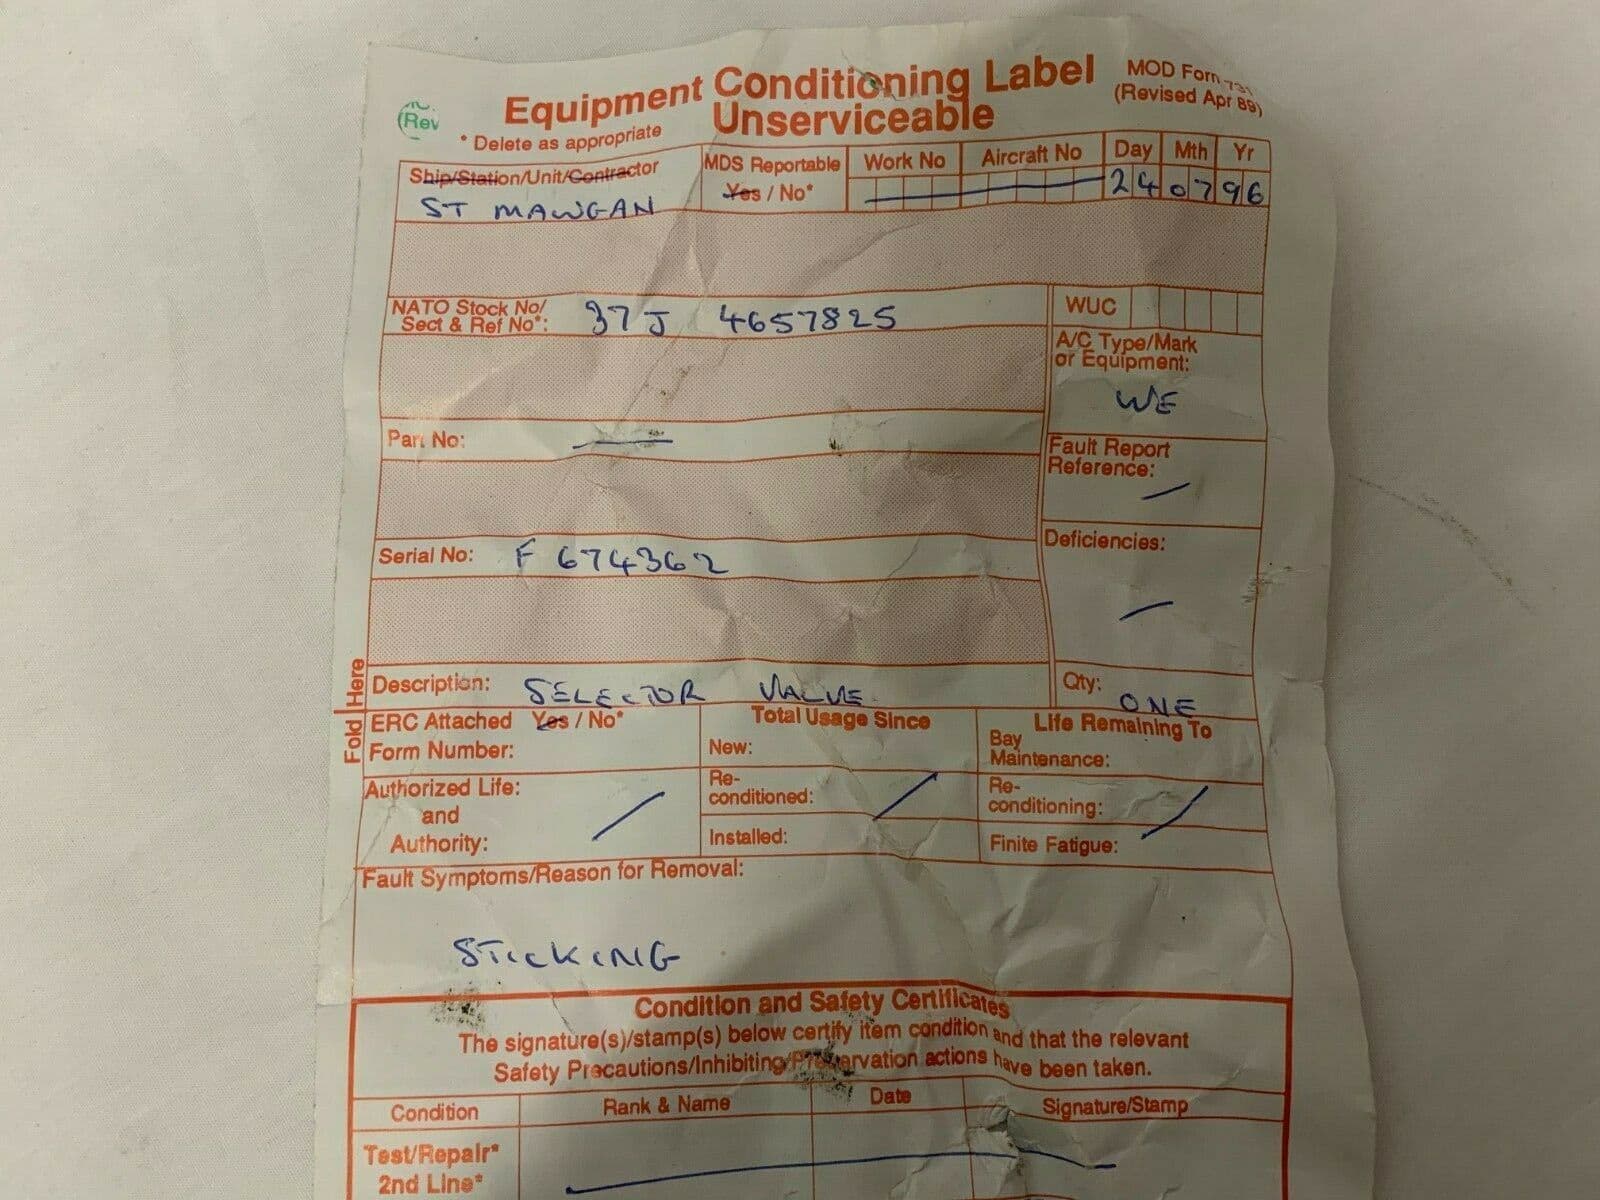 (Rev
Equipment Conditioning Label
Unserviceable
MOD Form 731
(Revised Apr 89)
* Delete as appropriate
Ship/Station/Unit/Contractor
ST MAWGAN
MDS Reportable
Yes / No*
Work No
Aircraft No
Day Mth Yr
24 07 96
NATO Stock No/
Sect & Ref No*: 37J 4657825
WUC
A/C Type/Mark
or Equipment:
WE
Part No:
Fault Report
Reference:
Serial No: F 674362
Deficiencies:
Description: SELECTOR VALVE
Qty: ONE
Fold Here
ERC Attached Yes / No*
Form Number:
Total Usage Since
New:
Life Remaining To
Bay
Maintenance:
Authorized Life:
and
Authority:
Re-
conditioned:
Installed:
Re-
conditioning:
Finite Fatigue:
Fault Symptoms/Reason for Removal:
STICKING
Condition and Safety Certificates
The signature(s)/stamp(s) below certify item condition and that the relevant
Safety Precautions/Inhibiting/Preservation actions have been taken.
Condition Rank & Name Date Signature/Stamp
Test/Repair*
2nd Line*